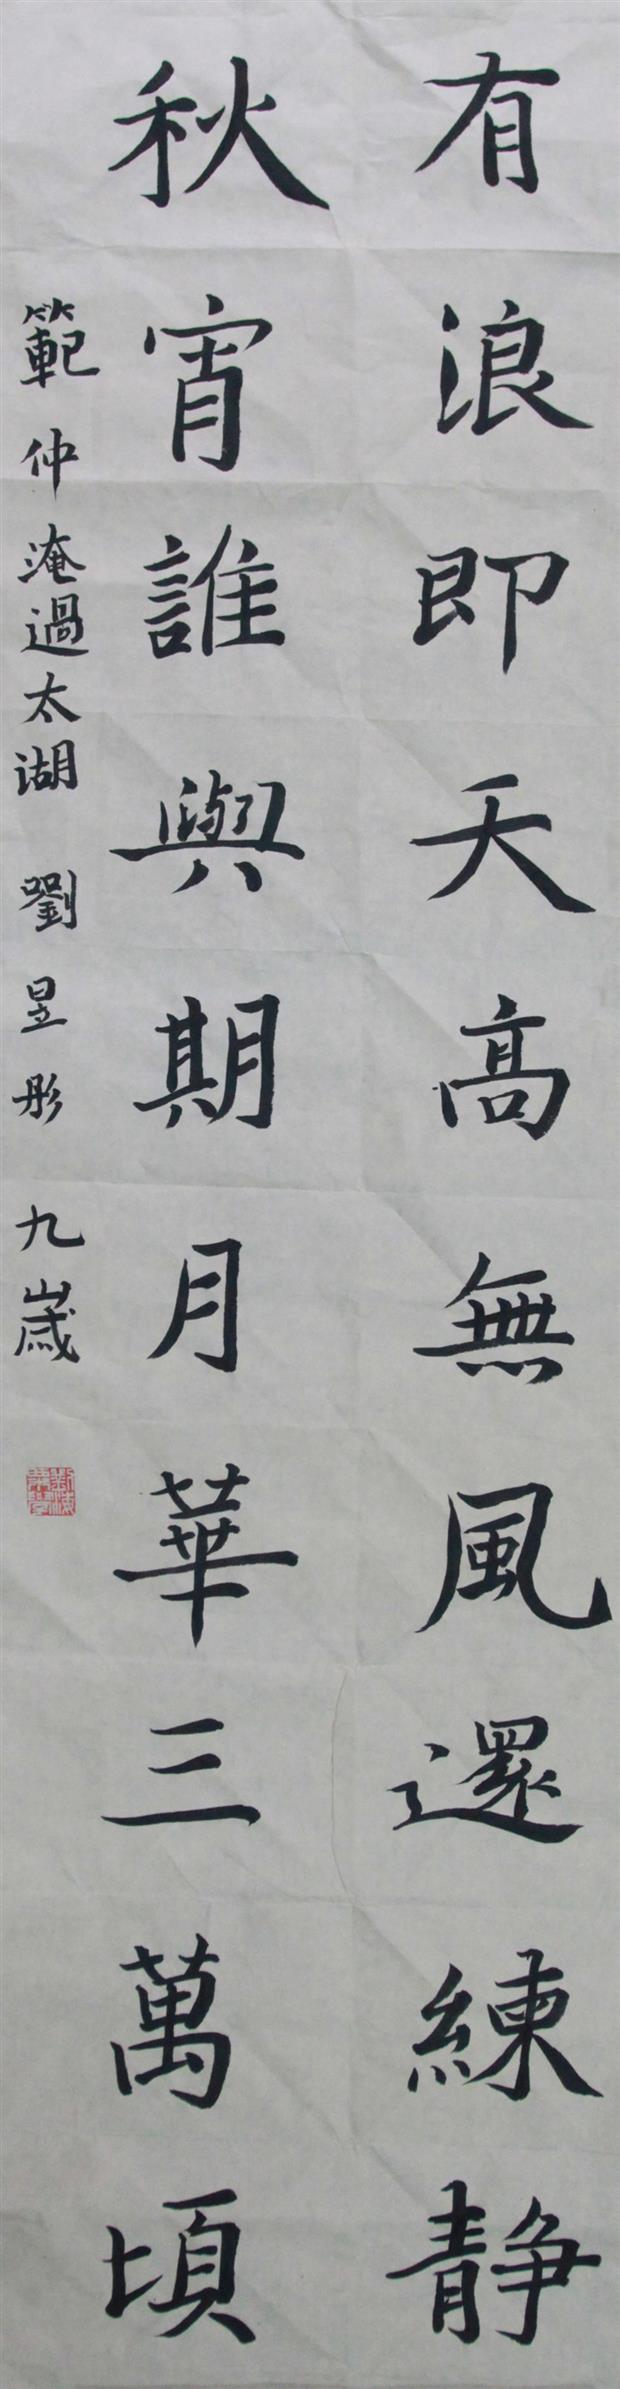 有浪即天高無風還練靜
秋宵誰與期月華三萬頃
範仲淹過太湖 劉昱彤 九歲